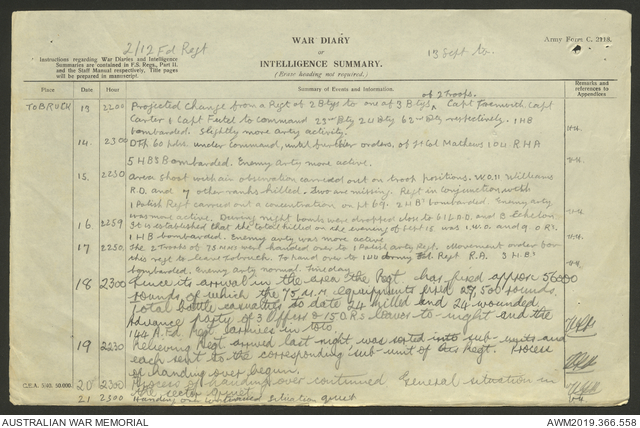 WAR DIARY
or
INTELLIGENCE SUMMARY.
(Erase heading not required.)
Army Form C. 2118.
2/12 Fd Regt
13 Sept
Instructions regarding War Diaries and Intelligence
Summaries are contained in F.S. Regs., Part II.
and the Staff Manual respectively. Title pages
will be prepared in manuscript.
Place Date Hour Summary of Events and Information. Remarks and references to Appendices
of 2 Troops.
TOBRUCH 13 2200 Projected Change from a Regt of 2 Btys to one of 3 Btys, Capt Capt
Carter & Capt to command 23rd Bty 24 Bty 62nd Bty respectively. 1 HB
bombarded. Slightly more arty activity.
14. 2300 60 pdrs. under command, until further orders, of Lt Col Mathews 104 RHA
5 HBs Bombarded. Enemy Arty more active.
15. 2230 Area shoot with air observation carried out on troop positions. W.O.II Williams
R.D. and 7 other ranks killed. Two are missing. Regt in conjunction with
1 Polish Regt carried out a concentration on pt 69. 2 HBs bombarded. Enemy arty
was more active. During night bombs were dropped close to 61 L.D.D. and B Echelon.
16. 2259 It is established that the total killed on the evening of Sept 15 was 1 W.O. and 9 O.Rs.
1 HB bombarded. Enemy arty was more active
17 2250 The 2 Troops of 75 mms were handed over to 1 Polish Arty Regt. Movement order for
this regt to leave Tobruch. To hand over to 144 Regt R.A. 3 HBs
bombarded. Enemy arty normal. Fine day.
18 2300 Since its arrival in the area the Regt. has fired approx 56000
rounds of which the 75 m.m equipments fired 27,500 rounds.
Total battle casualties to date 24 killed and 24 wounded.
Advance party of 3 Offrs & 15 O.Rs leaves to-night and the
144 A. Fd Regt arrives in toto.
19 2230 Relieving Regt arrived last night was sorted into sub-units and
each sent to the corresponding sub-unit of this Regt. Process
of handing over begun.
20 2300 Process of handing over continued General situation in
the sector quiet.
21 2300 Handing over continued situation quiet
AUSTRALIAN WAR MEMORIAL AWM2019.366.558